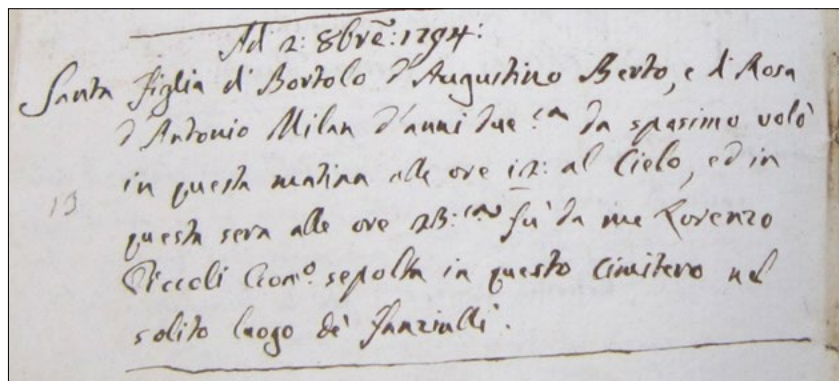 Ad 2: 8brẽ: 1794:
Santa Figlia di Bortolo d'Augustino Berto, e di Rosa
d'Antonio Milan d'anni due :ca da spasimo volò
in questa matina alle ore 12: al Cielo, ed in
questa sera alle ore 23: :ca fù da me Lorenzo
13
Piccoli Econo. sepolta in questo Cimitero nel
solito luogo de' fanciulli.